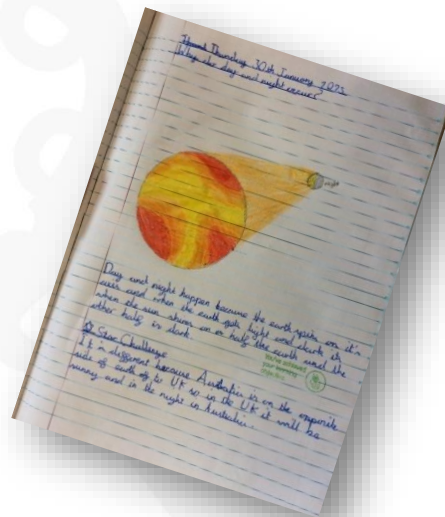 Thursday 30th January 2025
Why the day and night occurs
night
Day and night happen because the earth spins on it's
axis and when the earth gets light and dark its
when the sun shines on on half the earth and the
other half is dark.
Star Challenge
It is different because Australia is on the opposite
side of earth to UK so in the UK it will be
sunny and in the night in Australia.
You've achieved
your learning
objective